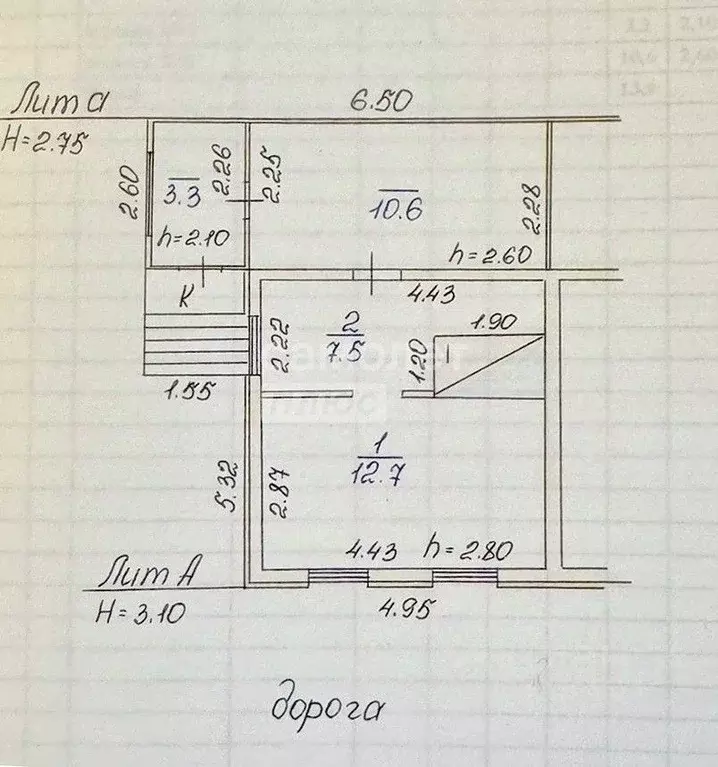 2,10
10,6
Лит а
6.50
H=2.75
2.60
3.3
2.26
2.25
10.6
2.28
h=2.10
h=2.60
К
4.43
2
7.5
2.22
1.90
1.20
плюс
1.55
1
12.7
5.32
2.87
4.43
h=2.80
Лит А
H=3.10
4.95
дорога